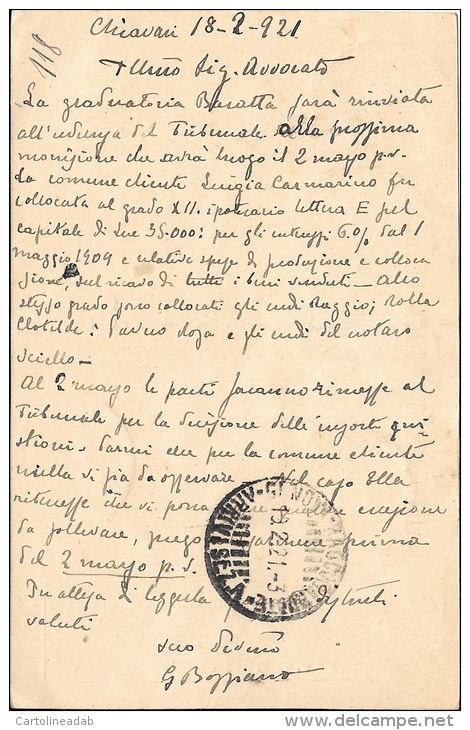 118
Chiavari 18-2-921
Illmo Sig. Avvocato
La graduatoria Baratta sarà rinviata
all'udienza del Tribunale alla prossima
riunizione che avrà luogo il 2 marzo p.v.
La comune cliente Luigia Carmarino fu
collocata al grado XII. ipotecario lettera E pel
capitale di Lire 35.000: per gli interessi 6.% dal 1
maggio 1909 e relative spese di produzione e colloca
zione, sul ricavo di tutti i beni venduti - Allo
stesso grado sono collocati gli eredi Raggio; Rolla
Clotilde: e gli eredi del notaro
Sciello -
Al 2 marzo le parti saranno rimesse al
Tribunale per la decisione delle insorte qui
stioni. Parmi che per la comune cliente
nulla vi sia da osservare. Nel caso Ella
ritenesse che vi possa eccezione
da sollevare, prego prima
del 2 marzo p.v.
In attesa di leggerla
saluti
suo Devmo
G Boggiano
19.2.21.-3
Cartolineadab
delcampe.net